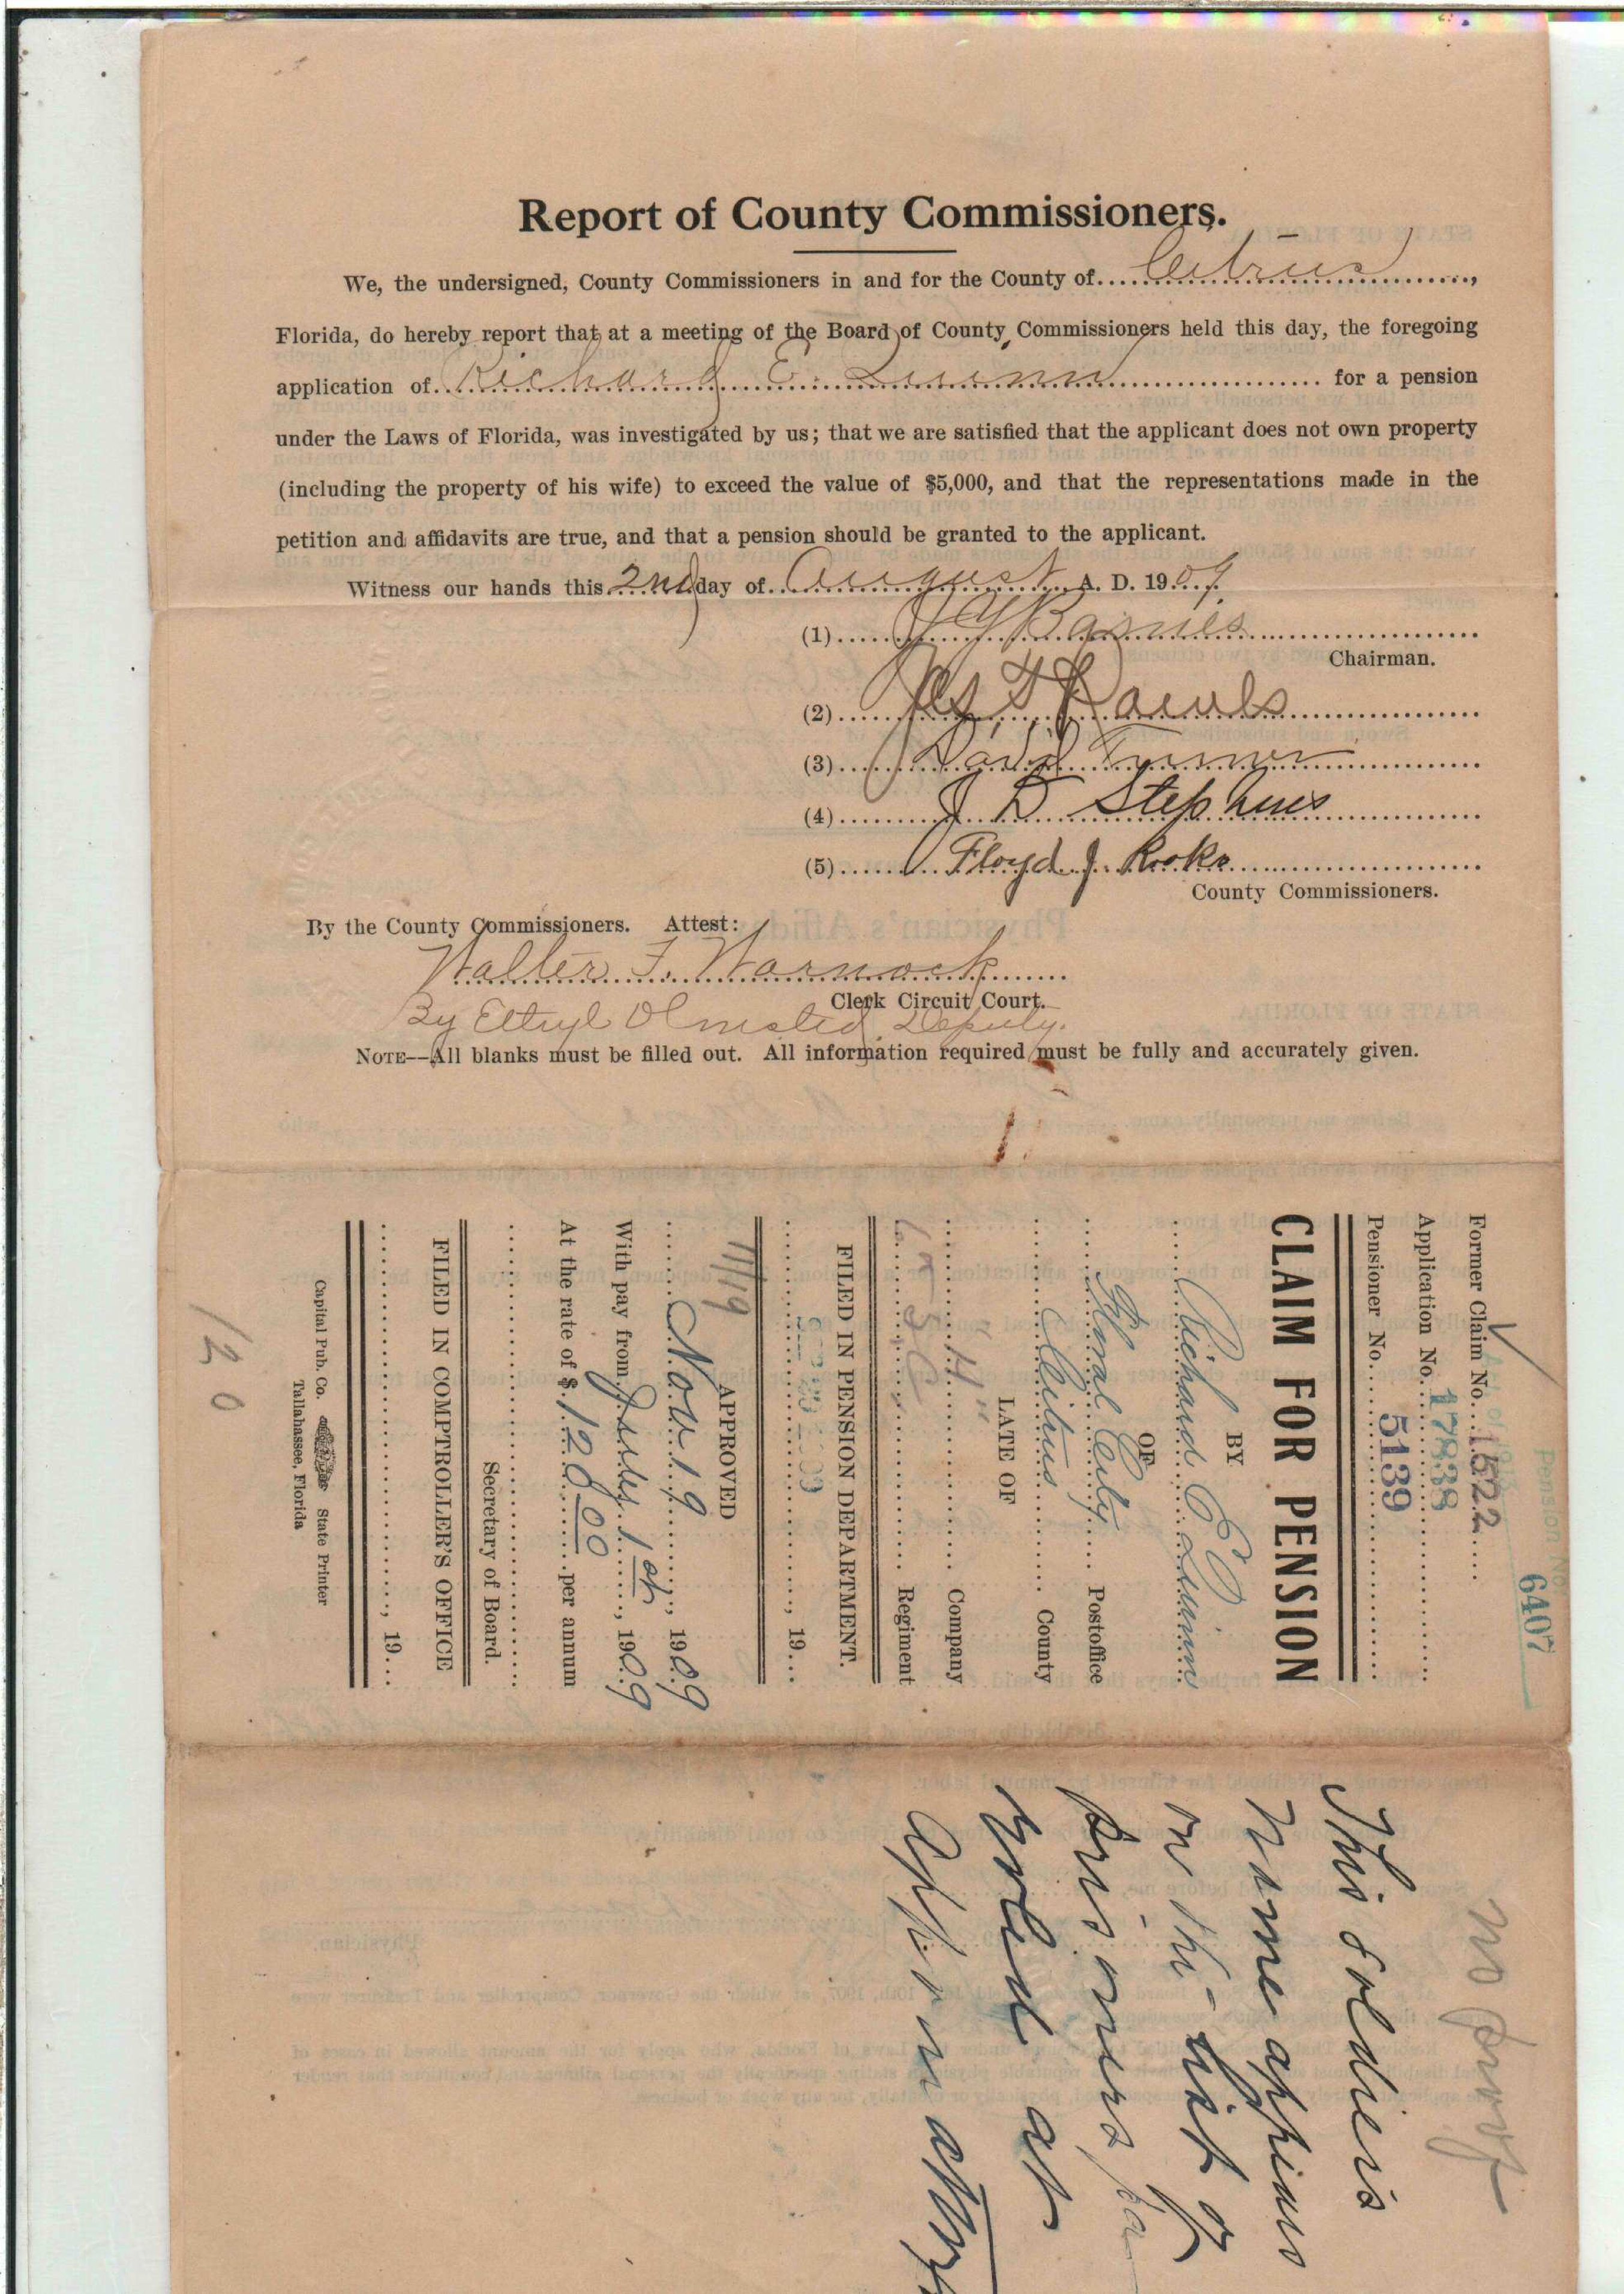 Report of County Commissioners.
We, the undersigned, County Commissioners in and for the County of Citrus,
Florida, do hereby report that at a meeting of the Board of County Commissioners held this day, the foregoing
application of Richard E. Quinn for a pension
under the Laws of Florida, was investigated by us; that we are satisfied that the applicant does not own property
(including the property of his wife) to exceed the value of $5,000, and that the representations made in the
petition and affidavits are true, and that a pension should be granted to the applicant.
Witness our hands this 2nd day of August A. D. 1909.
(1) Barnes
Chairman.
(2) Rawls
(3) David Turner
(4) J D Stephens
(5) Floyd J. Rooks
County Commissioners.
By the County Commissioners. Attest:
Walter F. Warnock
Clerk Circuit Court.
By Ethyl Olmsted Deputy.
NOTE—All blanks must be filled out. All information required must be fully and accurately given.
Pension No. 6407
Former Claim No. 1522
Application No. 17838
Pensioner No. 5139
CLAIM FOR PENSION
BY
Richard E Quinn
OF
Floral City Postoffice
Citrus County
LATE OF
"H" Company
Regiment
FILED IN PENSION DEPARTMENT.
, 19
APPROVED
11/19
Nov 19, 1909
With pay from July 1st, 1909
At the rate of $ 120.00 per annum
Secretary of Board.
FILED IN COMPTROLLER'S OFFICE
, 19
Capital Pub. Co. State Printer
Tallahassee, Florida
120
no proof
This soldier's
name appears
on the list of
prisoners
at